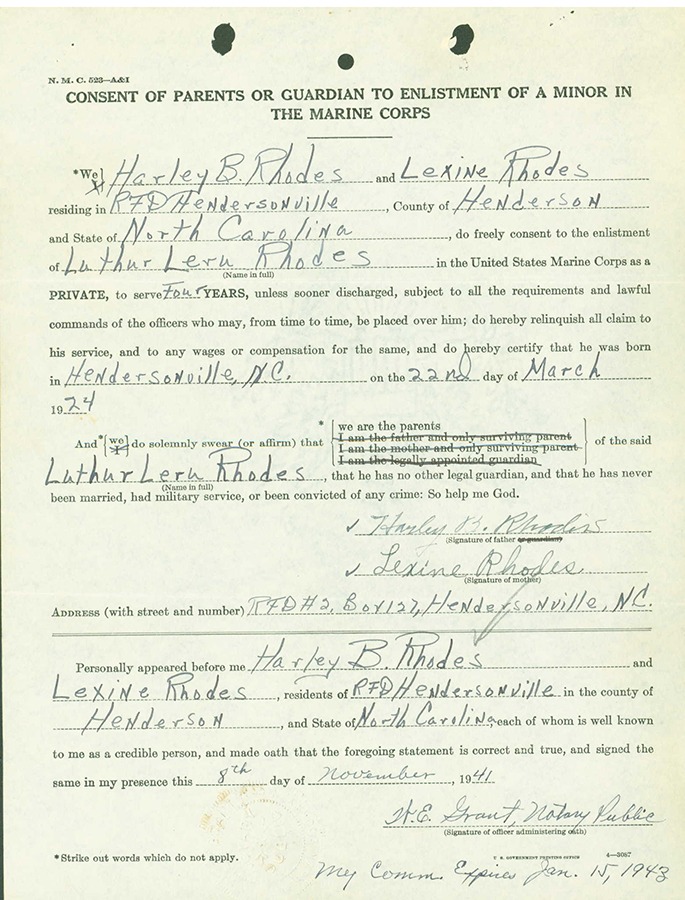 N. M. C. 523—A&I
CONSENT OF PARENTS OR GUARDIAN TO ENLISTMENT OF A MINOR IN
THE MARINE CORPS
*We I } Harley B. Rhodes and Lexine Rhodes
residing in RFD Hendersonville, County of Henderson
and State of North Carolina, do freely consent to the enlistment
of Luthur Leru Rhodes in the United States Marine Corps as a
(Name in full)
PRIVATE, to serve Four YEARS, unless sooner discharged, subject to all the requirements and lawful
commands of the officers who may, from time to time, be placed over him; do hereby relinquish all claim to
his service, and to any wages or compensation for the same, and do hereby certify that he was born
in Hendersonville, N.C. on the 22nd day of March
1924
we are the parents
I am the father and only surviving parent
And* { we I } do solemnly swear (or affirm) that * I am the mother and only surviving parent of the said
I am the legally appointed guardian
Luthur Leru Rhodes, that he has no other legal guardian, and that he has never
(Name in full)
been married, had military service, or been convicted of any crime: So help me God.
✓ Harley B. Rhodes
(Signature of father or guardian)
✓ Lexine Rhodes
(Signature of mother)
ADDRESS (with street and number) RFD #2, Box 127, Hendersonville, N.C.
Personally appeared before me Harley B. Rhodes and
Lexine Rhodes, residents of RFD Hendersonville in the county of
Henderson, and State of North Carolina, each of whom is well known
to me as a credible person, and made oath that the foregoing statement is correct and true, and signed the
same in my presence this 8th day of November, 1941
W.E. Grant, Notary Public
(Signature of officer administering oath)
*Strike out words which do not apply.
U. S. GOVERNMENT PRINTING OFFICE 4—3087
My Comm. Expires Jan. 15, 1943